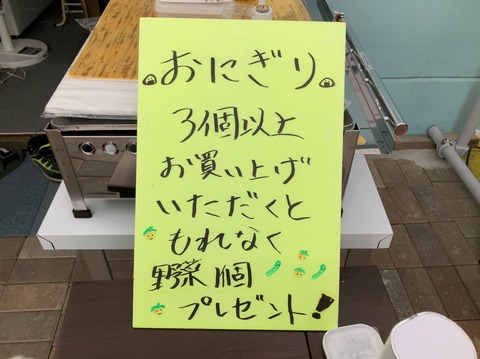 おにぎり
3個以上
お買い上げ
いただくと
もれなく
野菜1個
プレゼント!